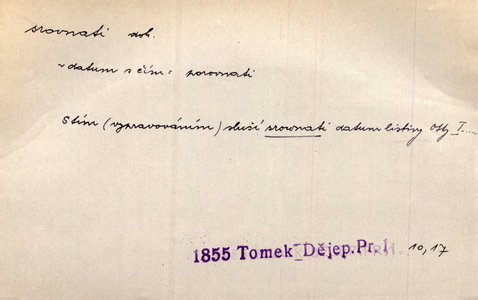 srovnati dok.
~ datum s čím = porovnati
S tím (vypravováním) sluší srownati datum listiny Otty I....
1855 Tomek Dějep. Pr. 1. 10, 17